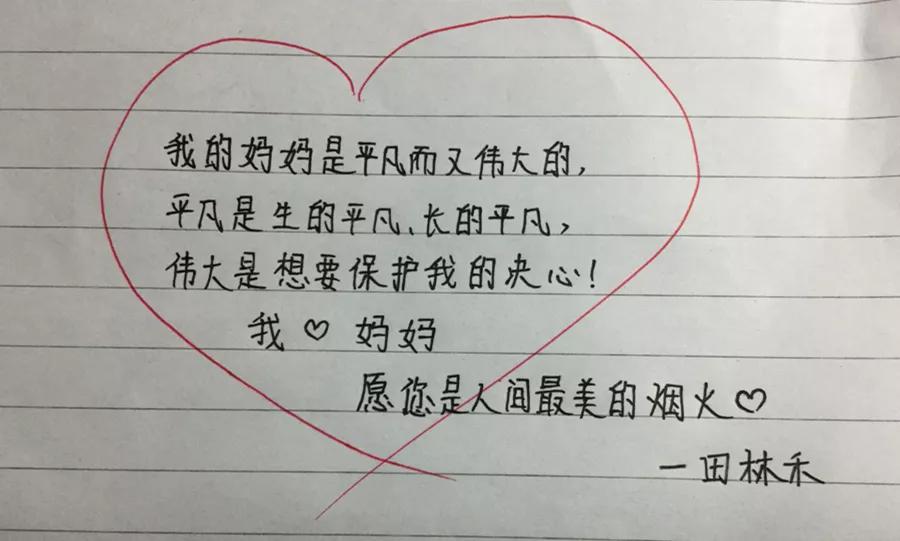 我的妈妈是平凡而又伟大的,
平凡是生的平凡、长的平凡,
伟大是想要保护我的决心!
我♡妈妈
愿您是人间最美的烟火♡
一田林禾